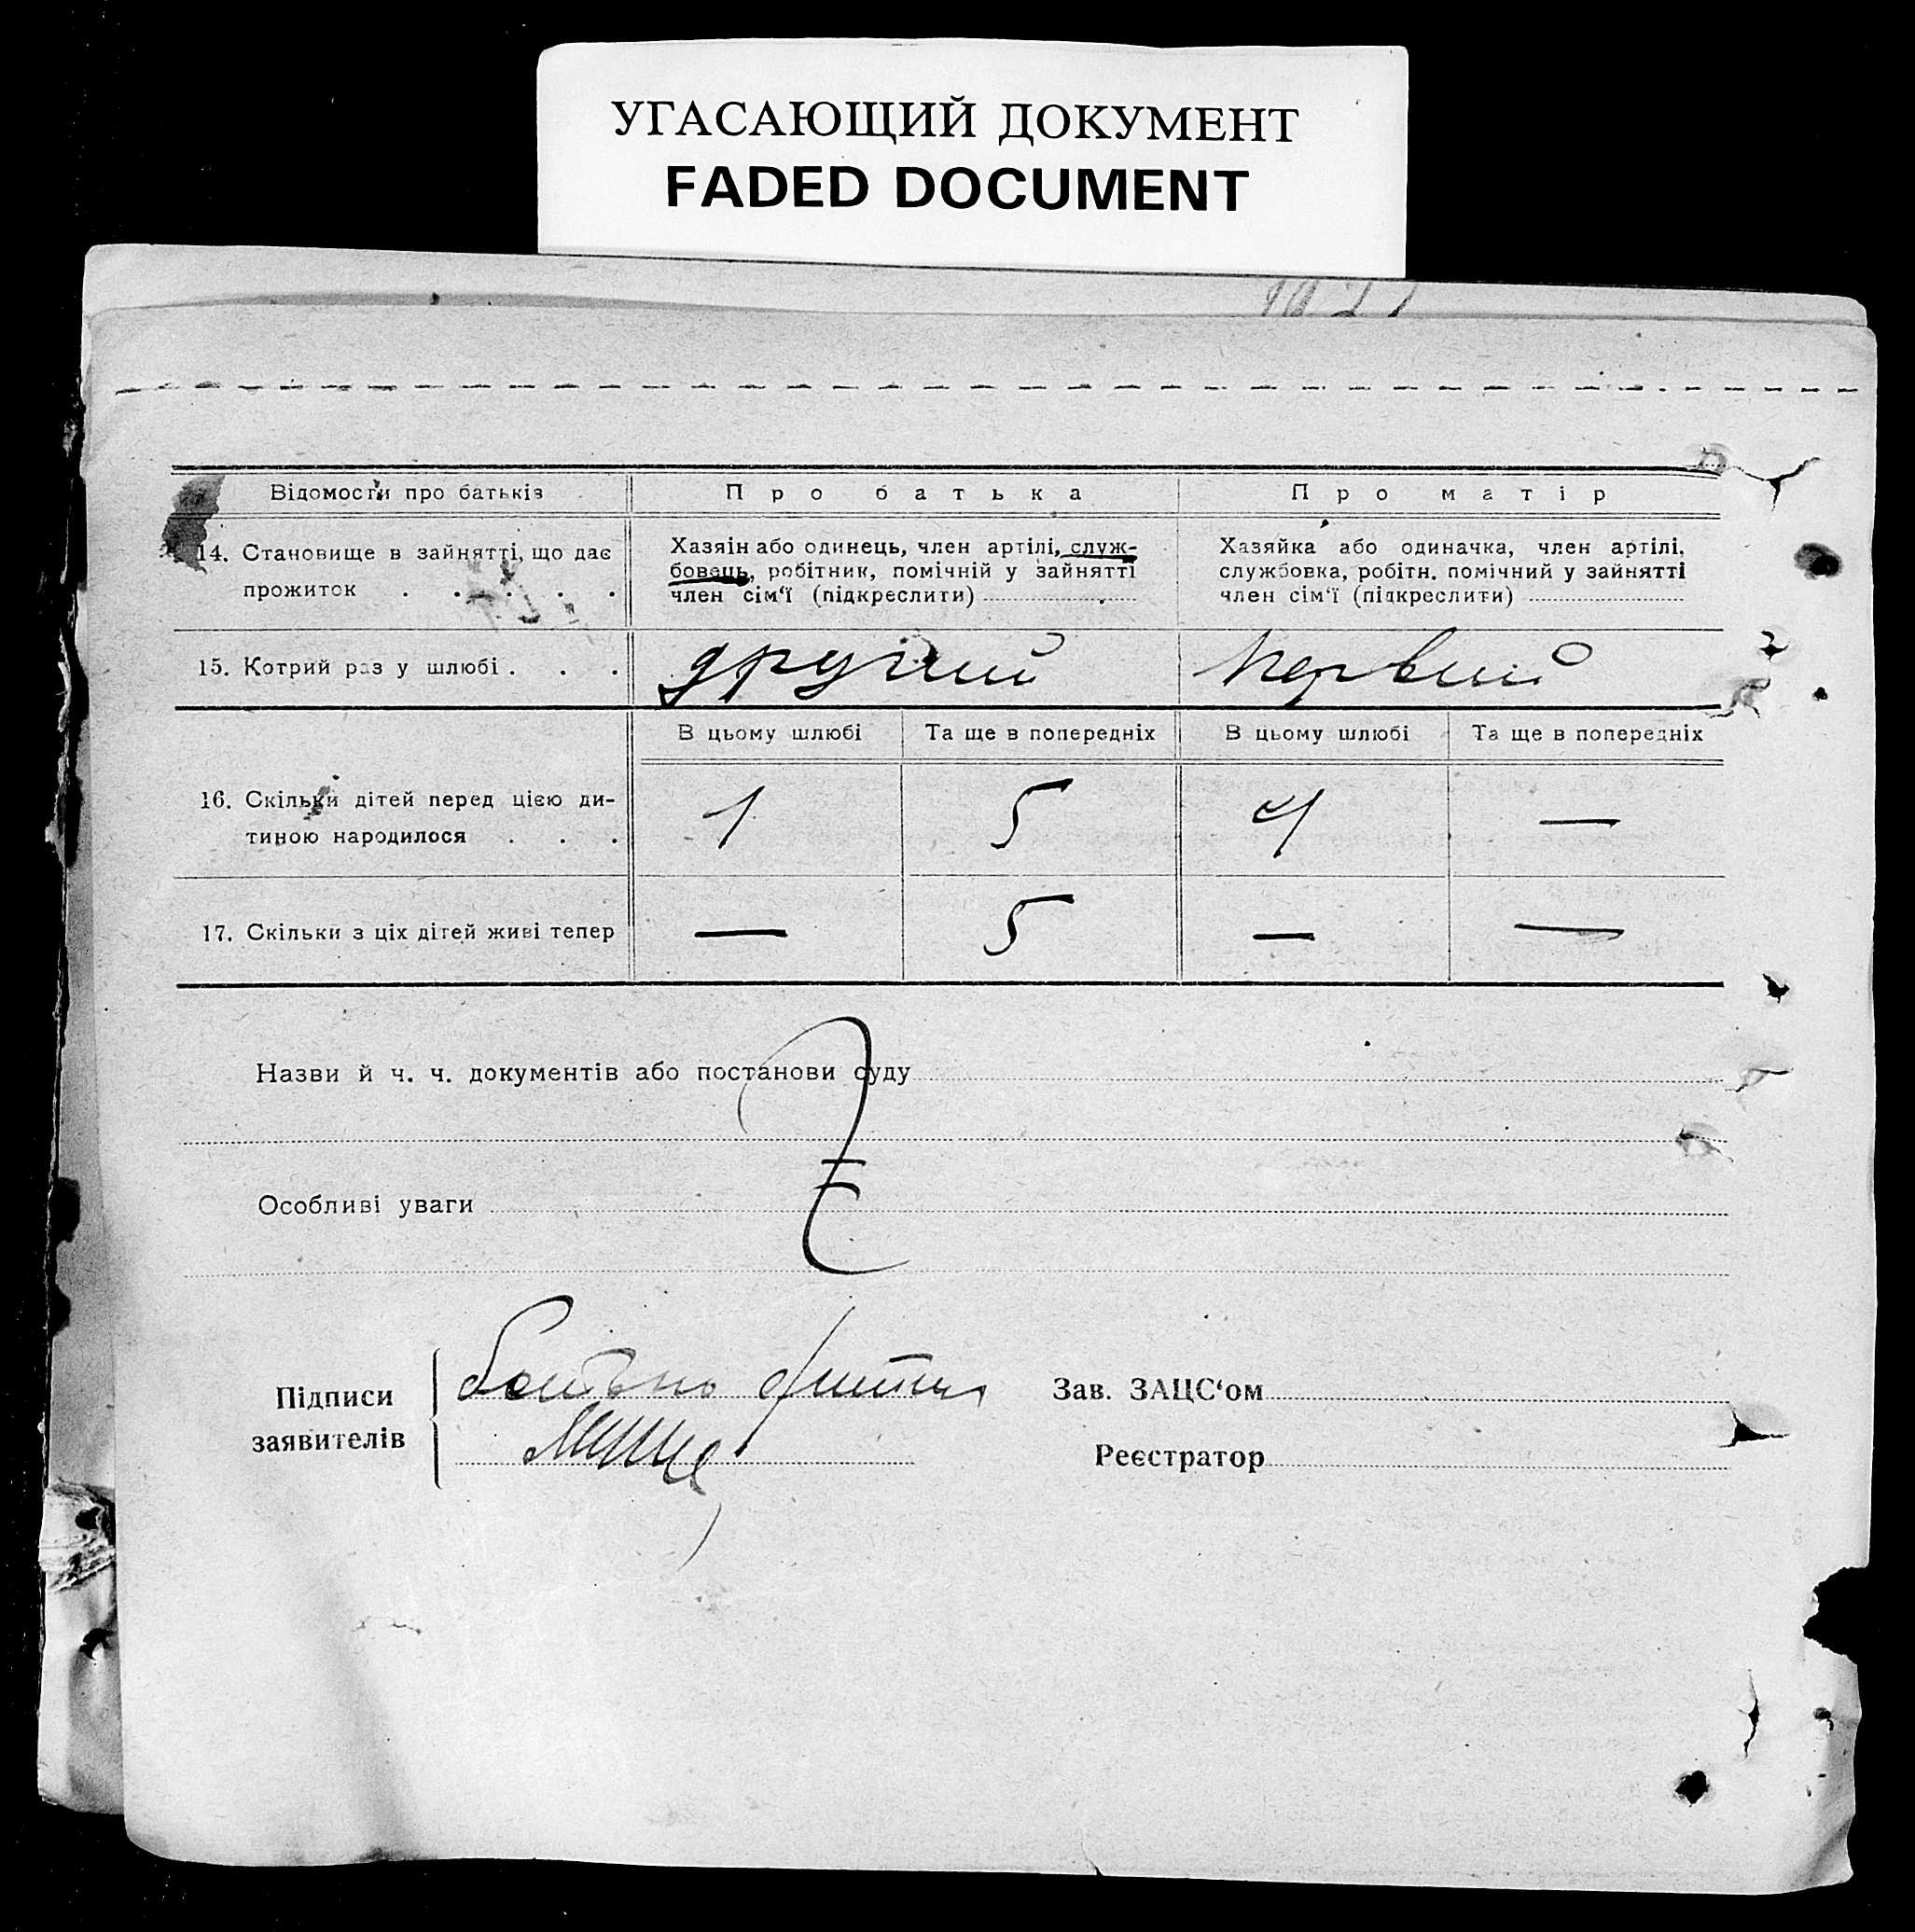 УГАСАЮЩИЙ ДОКУМЕНТ
FADED DOCUMENT
Відомости про батьків
Про батька
Про матір
14. Становище в зайнятті, що дає
прожиток . . . . .
Хазяїн або одинець, член артілі, служ-
бовець, робітник, помічній у зайнятті
член сім‘ї (підкреслити)
Хазяйка або одиначка, член артілі,
службовка, робітн. помічний у зайнятті
член сім‘ї (підкреслити)
15. Котрий раз у шлюбі . . .
другий
первий
В цьому шлюбі
Та ще в попередніх
В цьому шлюбі
Та ще в попередніх
16. Скільки дітей перед цією ди-
тиною народилося . . .
1
5
—
17. Скільки з ціх дітей живі тепер
—
5
—
—
Назви й ч. ч. документів або постанови суду
Особливі уваги
Підписи
заявителів
Зав. ЗАЦС‘ом
Реєстратор